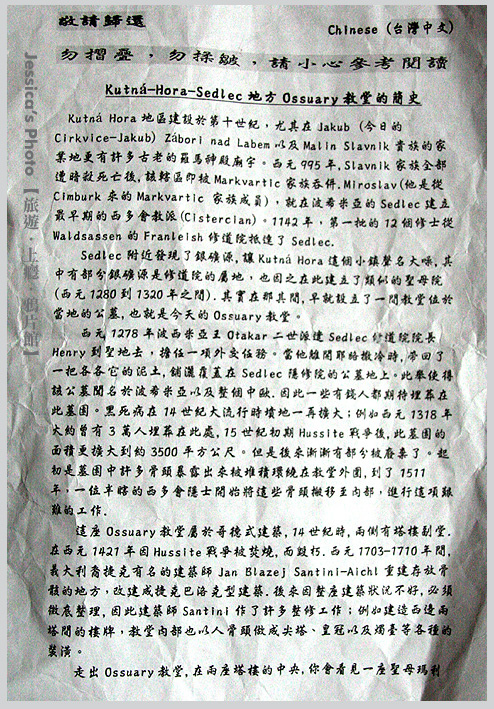 敬請歸還
Chinese (台灣中文)
勿摺疊，勿揉皺，請小心參考閱讀
Kutná-Hora-Sedlec 地方 Ossuary 教堂的簡史
Kutná Hora 地區建設於第十世紀，尤其在 Jakub (今日的
Cirkvice-Jakub) Zábori nad Labem 以及 Malin Slavnik 貴族的家
業地更有許多古老的羅馬神殿廟宇。西元 995年, Slavnik 家族全部
遭暗殺死亡後, 該轄區即被 Markvartic 家族吞併. Miroslav(他是從
Cimburk 來的 Markvartic 家族成員)，就在波希米亞的 Sedlec 建立
最早期的西多會教派(Cistercian)。1142年, 第一批的 12 個修士從
Waldsassen 的 Franleish 修道院抵達了 Sedlec.
Sedlec 附近發現了銀礦源, 讓 Kutná Hora 這個小鎮聲名大噪, 其
中有部份銀礦源是修道院的屬地，也因之在此建立了類似的聖母院
(西元 1280 到 1320 年之間). 其實在那其間, 早就設立了一間教堂位於
當地的公墓, 也就是今天的 Ossuary 教堂。
西元 1278 年波西米亞王 Otakar 二世派遣 Sedlec 修道院院長
Henry 到聖地去，擔任一項外交任務。當他離開耶路撒冷時, 帶回了
一把各各它的泥土, 鋪灑覆蓋在 Sedlec 隱修院的公墓地上。此舉使得
該公墓聞名於波希米亞以及整個中歐. 因此一些有錢人都期待埋葬在
此墓園。黑死病在 14 世紀大流行時墳地一再擴大；例如西元 1318 年
大約曾有 3 萬人埋葬在此處, 15 世紀初期 Hussite 戰爭後, 此墓園的
面積更擴大到約 3500 平方公尺。但是後來漸漸有部分被廢棄了。起
初是墓園中許多骨頭暴露出來被堆積環繞在教堂外圍, 到了 1511
年，一位半瞎的西多會隱士開始將這些骨頭搬移至內部，進行這項艱
難的工作.
這座 Ossuary 教堂屬於哥德式建築, 14 世紀時, 兩側有塔樓副堂.
在西元 1421 年因 Hussite 戰爭被焚燒, 而毀朽. 西元 1703-1710 年間,
義大利裔捷克有名的建築師 Jan Blazej Santini-Aichl 重建存放骨
骸的地方，改建成捷克巴洛克型建築. 後來因整座建築狀況不好, 必須
徹底整理, 因此建築師 Santini 作了許多整修工作；例如建造西邊兩
塔間的樓牌，教堂內部也以人骨頭做成尖塔、皇冠以及燭臺等各種的
裝潢。
走出 Ossuary 教堂, 在兩座塔樓的中央, 你會看見一座聖母瑪利
Jessica's Photo【旅遊．上癮．鴨片館】